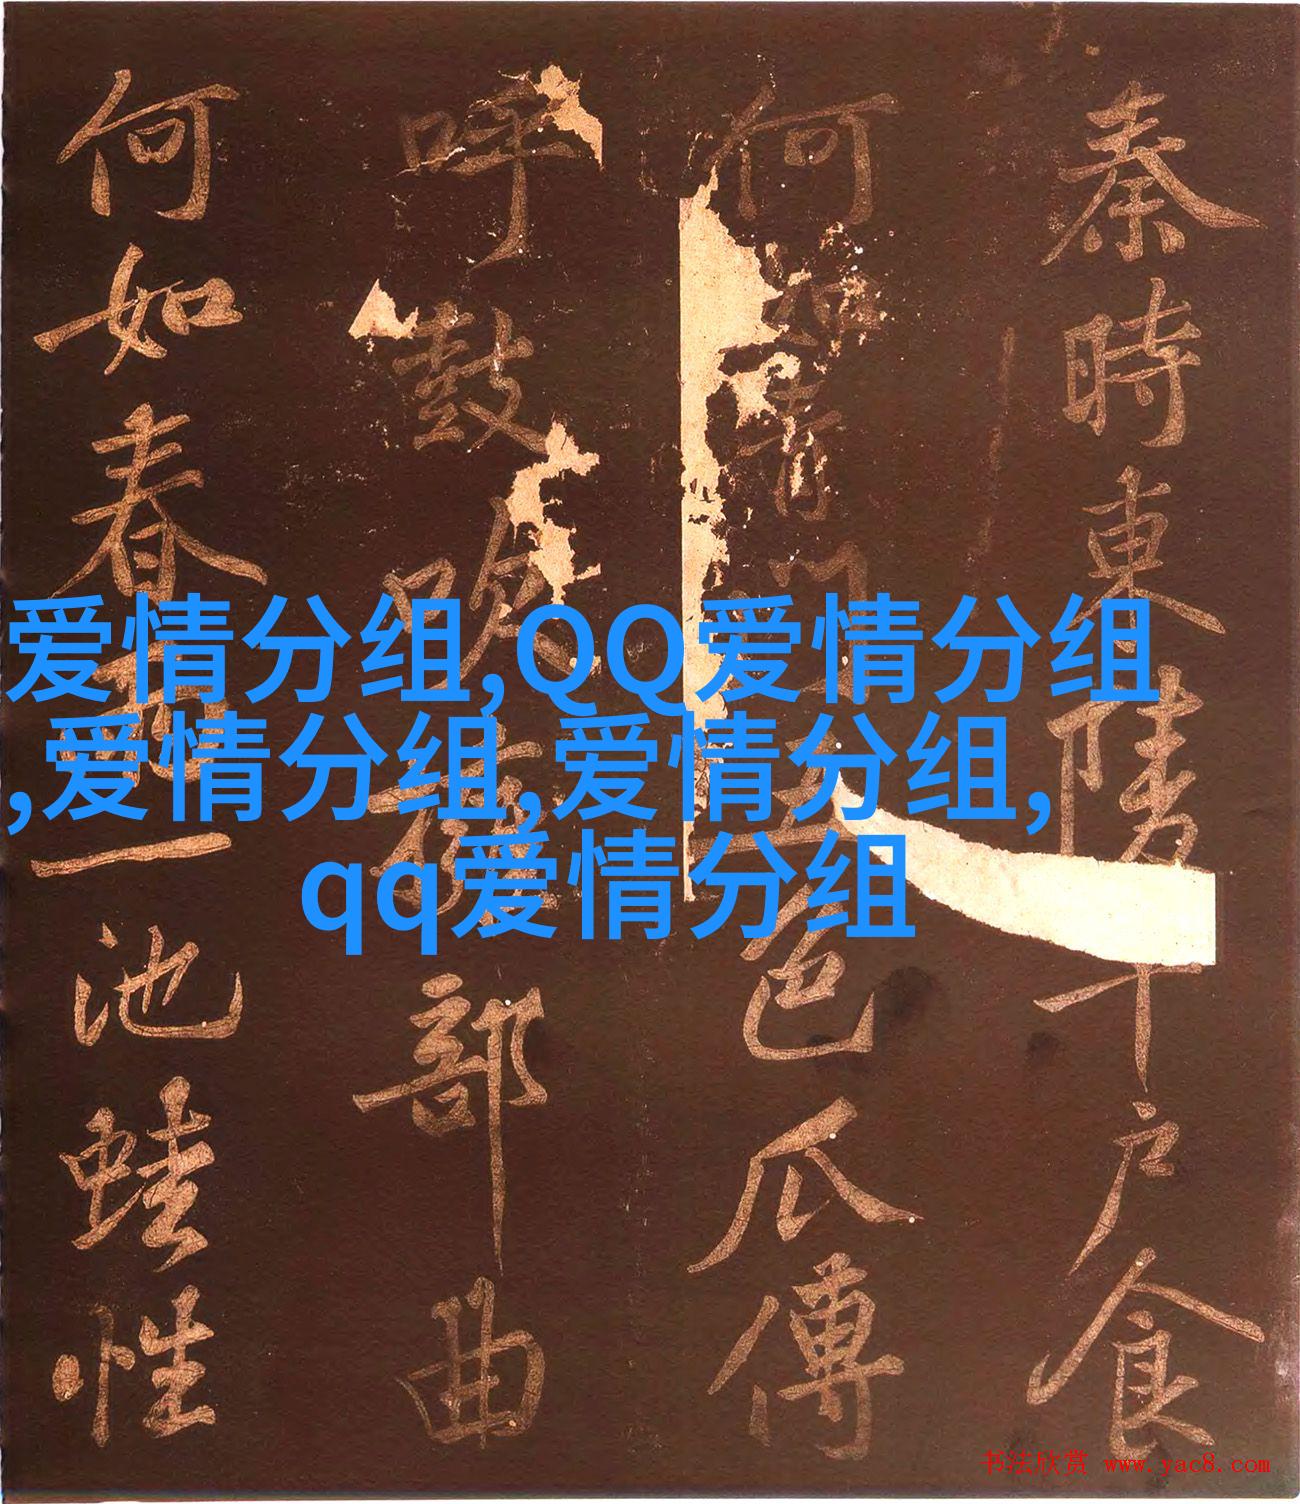 秦時東陵千户食
何如青門五色瓜傳
呼鼓吹
部曲
何如春
一池蛙性
爱情分组,QQ爱情分组
,爱情分组,爱情分组,
qq爱情分组
书法欣赏 www.yac8.com